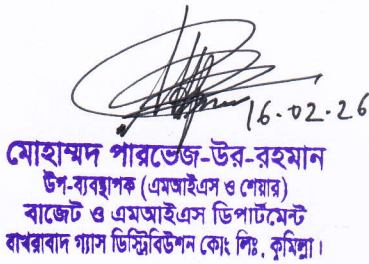 16-02-26
মোহাম্মদ পারভেজ-উর-রহমান
উপ-ব্যবস্থাপক (এমআইএস ও শেয়ার)
বাজেট ও এমআইএস ডিপার্টমেন্ট
বাখরাবাদ গ্যাস ডিস্ট্রিবিউশন কোং লিঃ, কুমিল্লা।